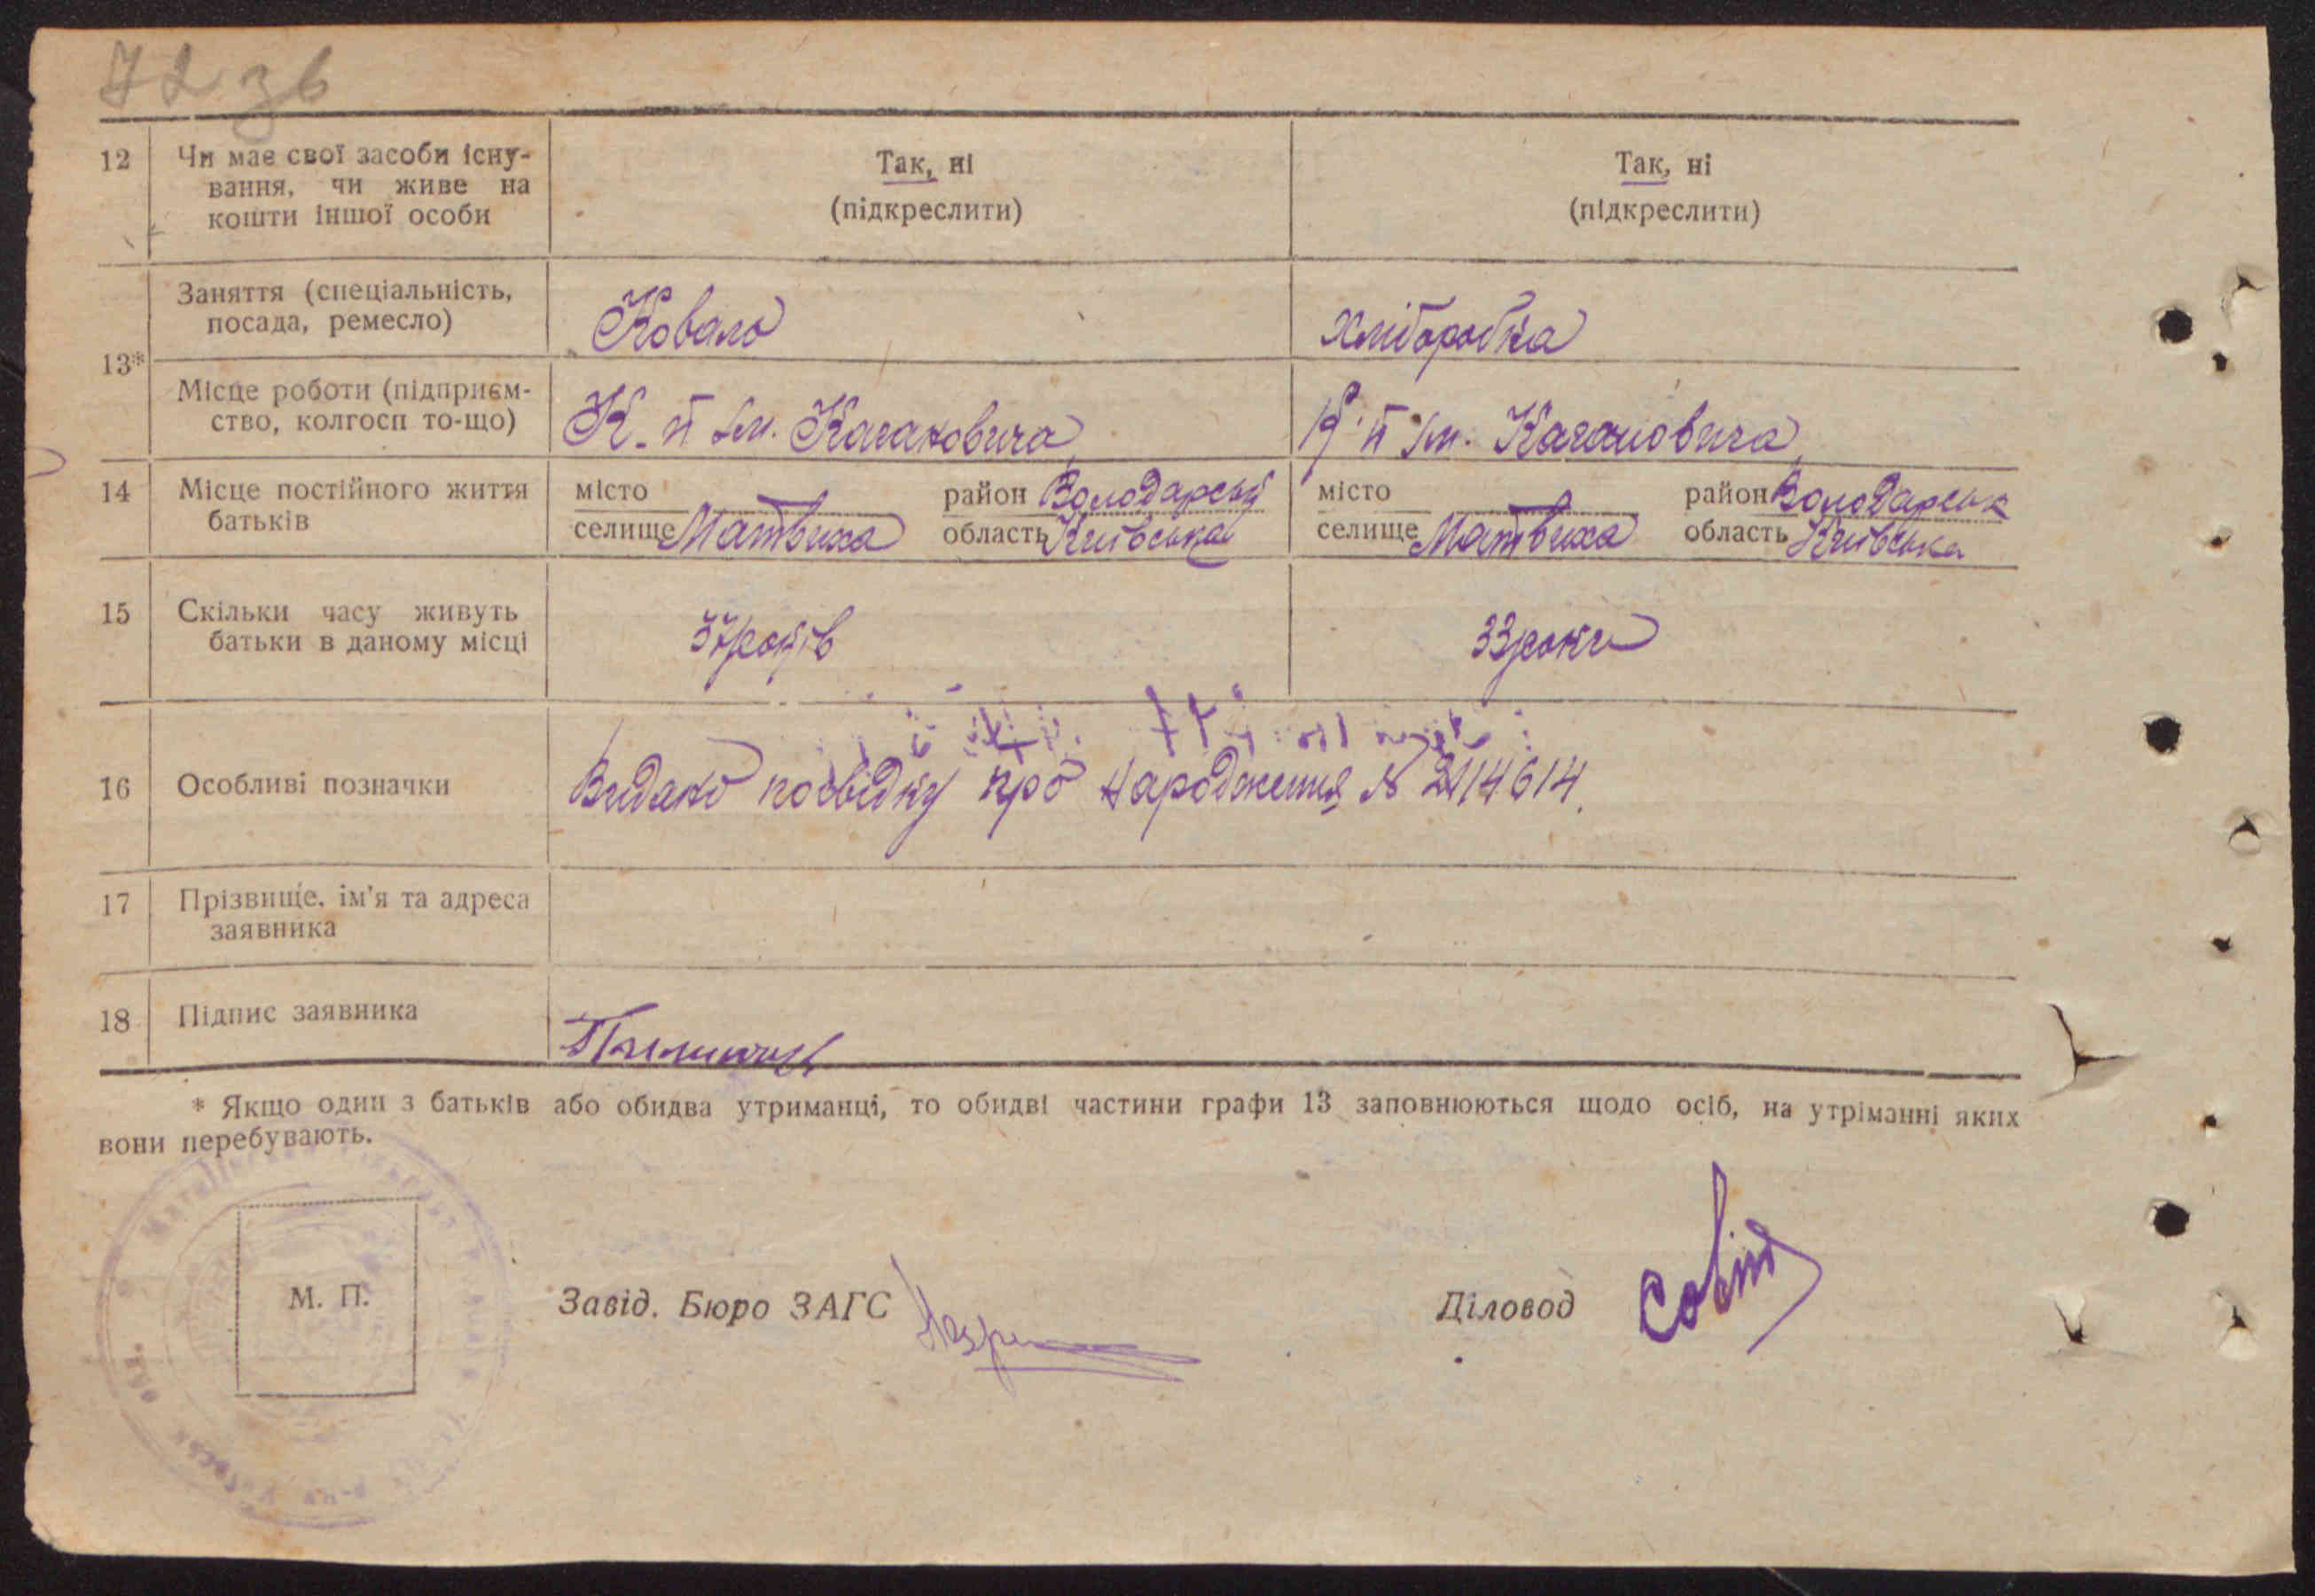 72 зв
12 Чи має свої засоби існу-
вання, чи живе на
кошти іншої особи
Так, ні
(підкреслити)
Так, ні
(підкреслити)
13*
Заняття (спеціальність,
посада, ремесло)
Коваль
хліборобка
Місце роботи (підприєм-
ство, колгосп то-що)
К-п ім. Кагановича
К-п ім. Кагановича
14 Місце постійного життя
батьків
місто район Володарський
селище Матвиха область Київська
місто район Володарськ
селище Матвиха область Київська
15 Скільки часу живуть
батьки в даному місці
37 років
33 роки
16 Особливі позначки
Видано посвідку про народження №
17 Прізвище, ім'я та адреса
заявника
18 Підпис заявника
* Якщо один з батьків або обидва утриманці, то обидві частини графи 13 заповнюються щодо осіб, на утріманні яких
вони перебувають.
М. П.
Завід. Бюро ЗАГС
Діловод